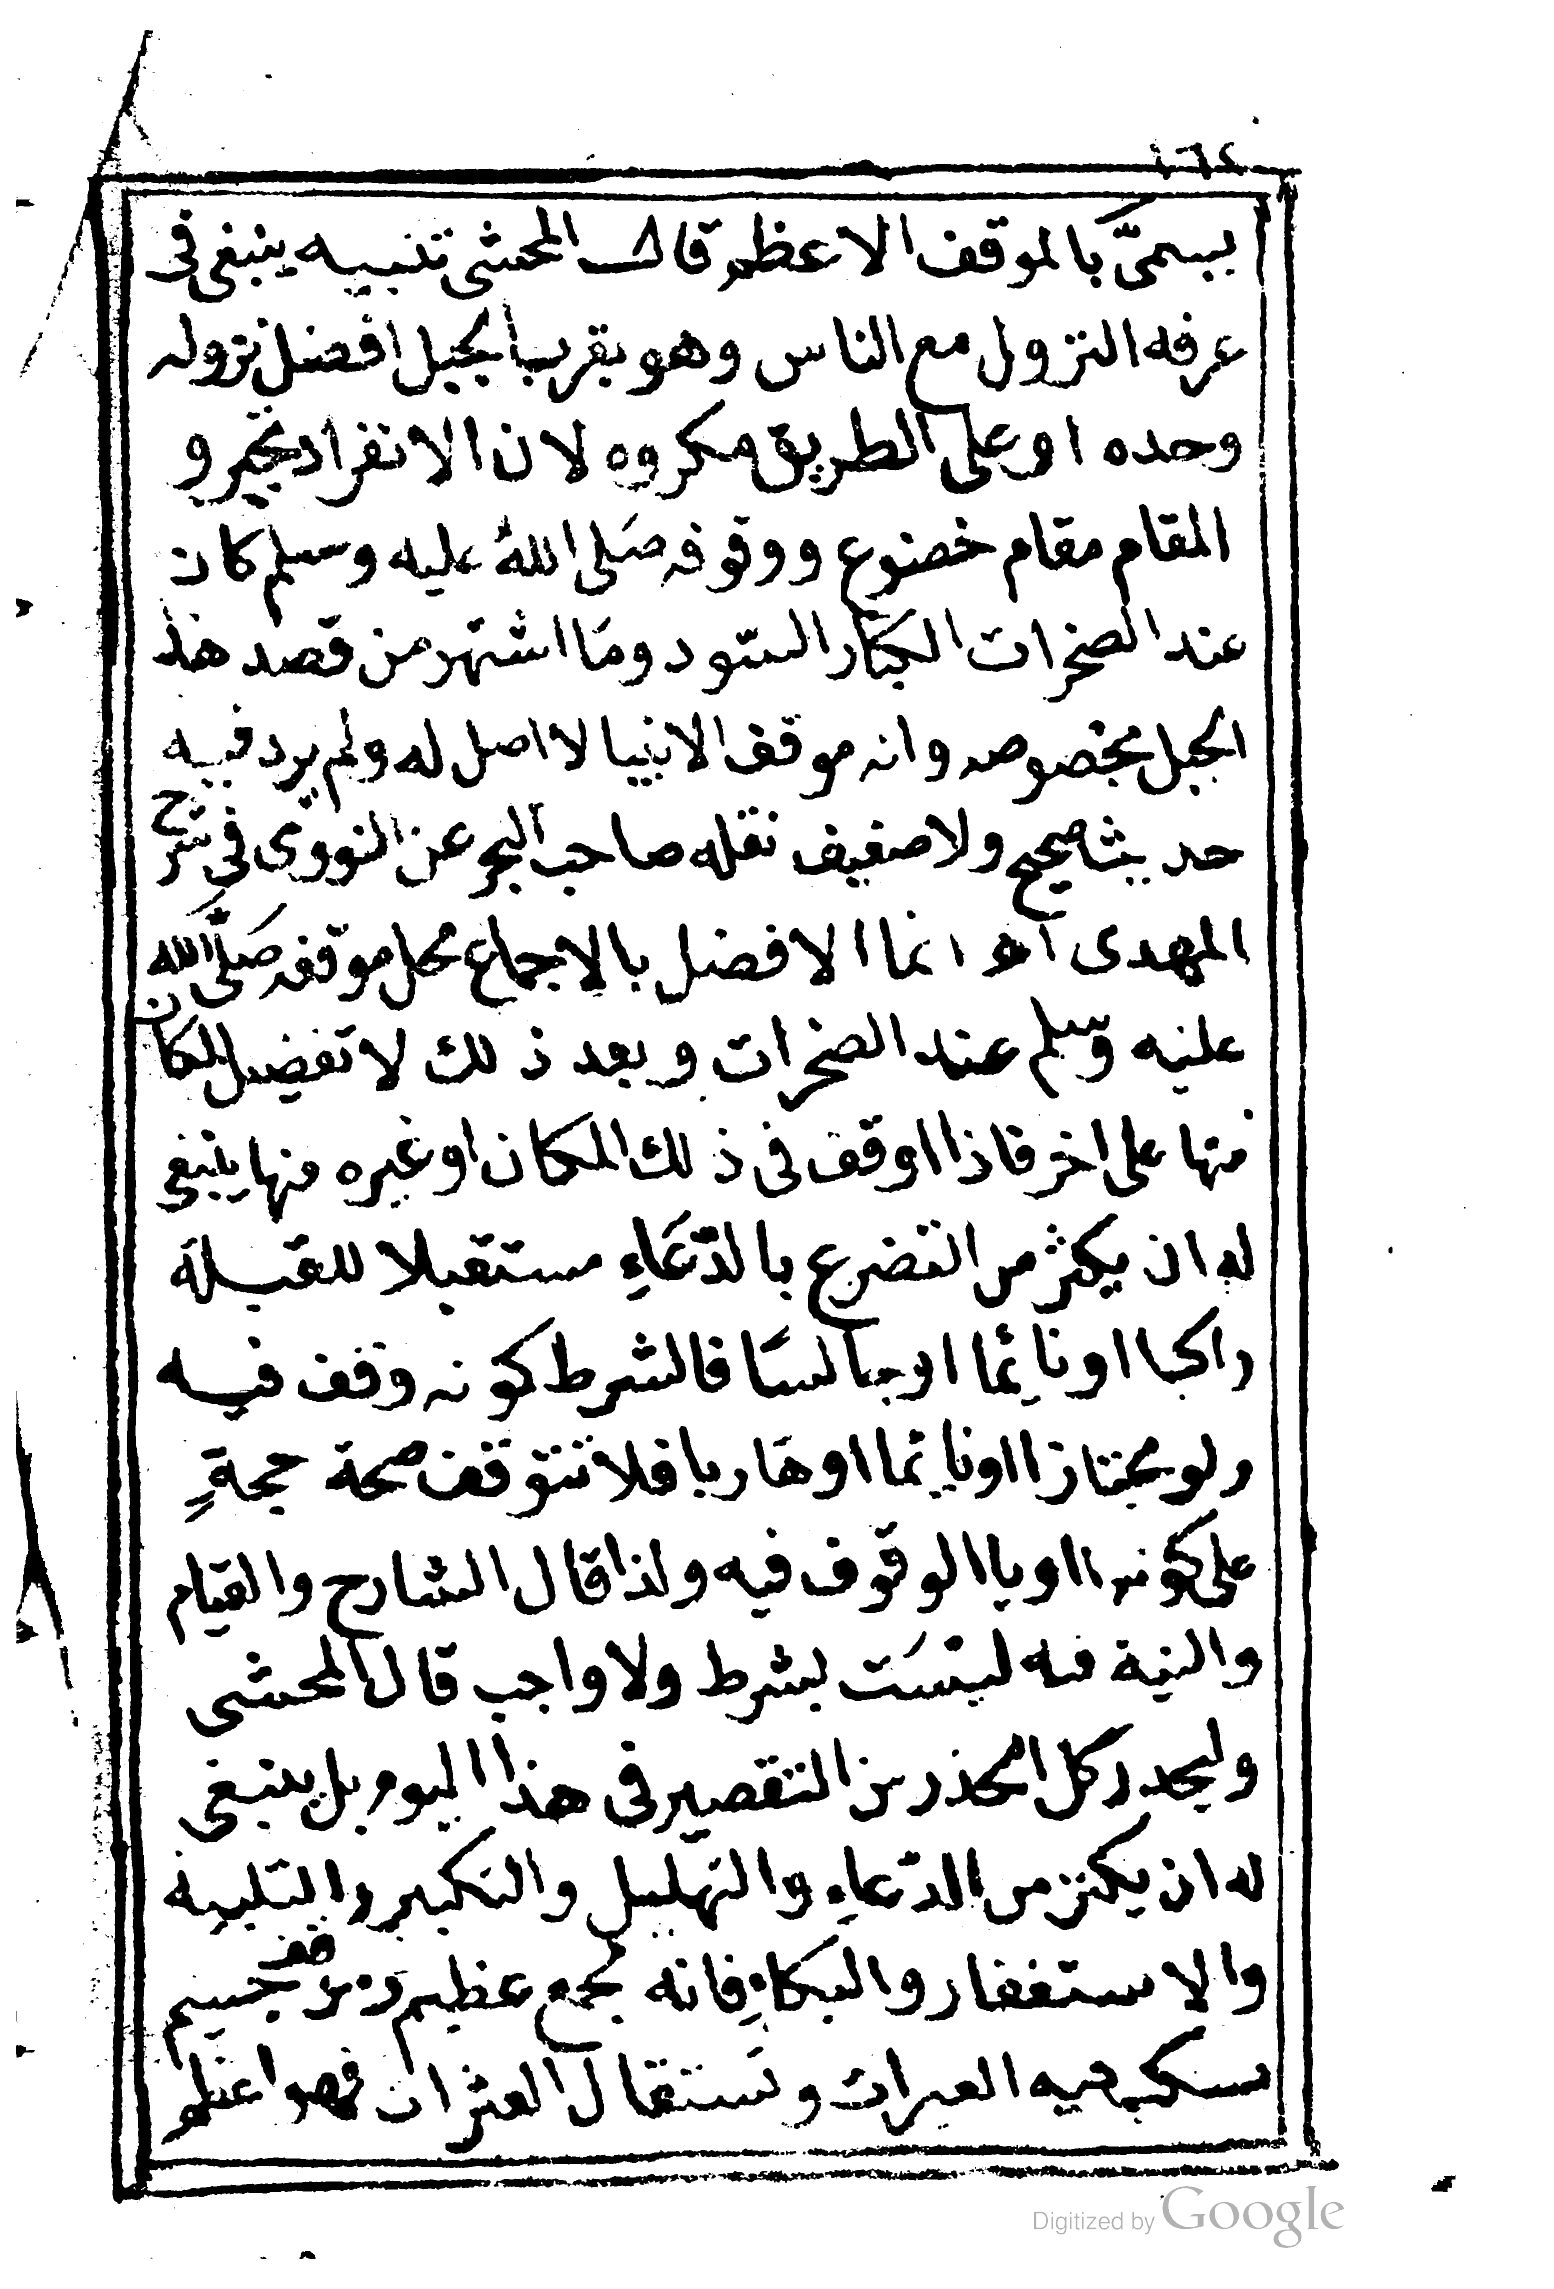 ١٦٤
يسمىّ بالموقف الاعظم قال المحشى تنبيه ينبغى فى
عرفه النزول مع الناس وهو بقرب الجبل افضل نزوله
وحده او على الطريق مكروه لان الانفراد تجبر و
المقام مقام خضوع ووقوفه صَلى اللهُ عليه وسلم كان
عند الصخرات الكبار السّود ومَا اشتهر من قصد هذا
الجبل بخصوصه وانه موقف الانبيا لا اصل له ولم يرد فيه
حديث صحيح ولا ضعيف نقله صاحب البحر عن النووى فى شرح
المهدى اهـ انما الافضل بالاجماع محل موقفه صَلَّى الله
عليه وسلم عند الصخرات وبعد ذلك لا تفضيل لمكان
منها على اخر فاذا اوقف فى ذلك المكان او غيره منها ينبغى
له ان يكثر من التضرع بالدّعَاءِ مستقبلا للقبلة
راكبا او نائما او جالسَا فالشرط كونه وقف فيه
ولو مجتازا او نائما او هَاربا فلا تتوقف صحة حجةٍ
على كونه ناويا الوقوف فيه ولذا قال الشارح والقيام
والنية فيه ليسَت بشرط ولا واجب قال المحشى
وليحدر كل الحذر من التقصير فى هذا اليوم بل ينبغى
له ان يكثر من الدّعاءِ والتهليل والتكبير والتلبية
والاستغفار والبكاءِ فانه مجمع عظيم وموقف جسيم
تسكب فيه العبرات وتستقال العثرات فهو اعظم
Digitized by Google